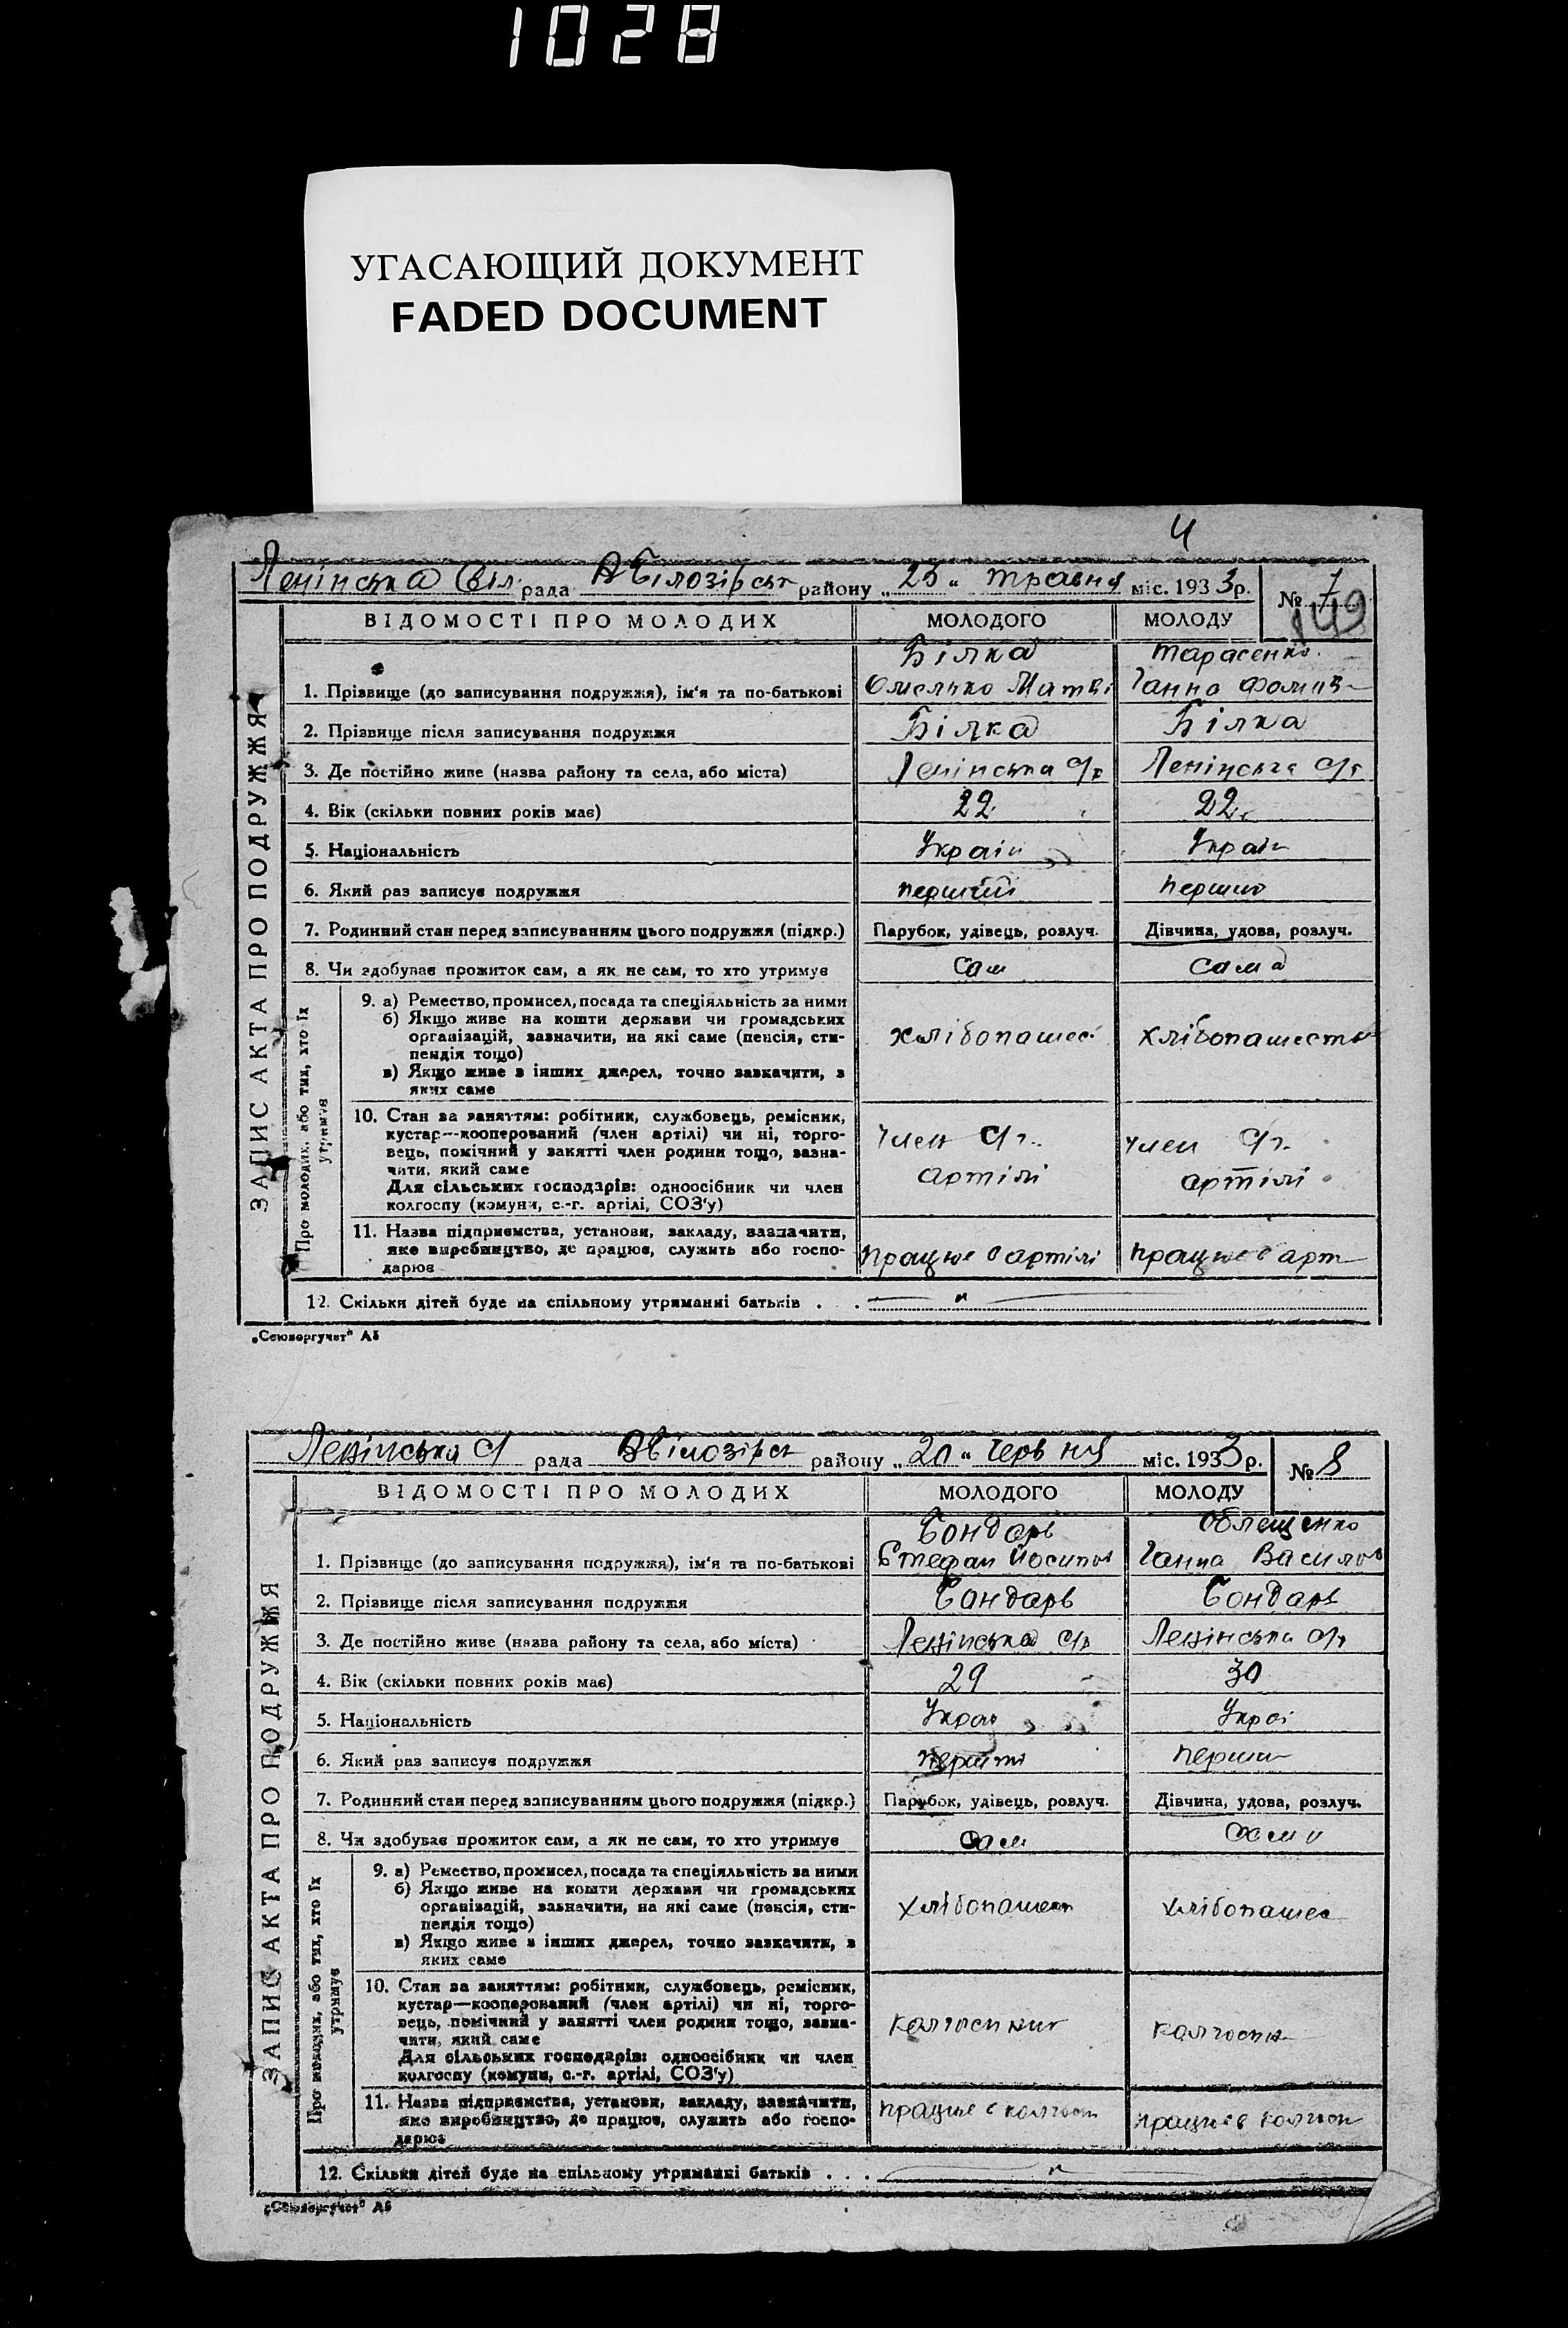 1028
УГАСАЮЩИЙ ДОКУМЕНТ
FADED DOCUMENT
4
Ленінська Сіл. рада В Білозірськ району „25“ травня міс. 1933р. № 7
149
ВІДОМОСТІ ПРО МОЛОДИХ МОЛОДОГО МОЛОДУ
ЗАПИС АКТА ПРО ПОДРУЖЖЯ
Білка Тарасенко
1. Прізвище (до записування подружжя), ім'я та по-батькові Омелько Матві Ганна
2. Прізвище після записування подружжя Білка Білка
3. Де постійно живе (назва району та села, або міста) Ленінська с/р Ленінська с/р
4. Вік (скільки повних років має) 22 22
5. Національність Україн Україн
6. Який раз записує подружжя перший перший
7. Родинний стан перед записуванням цього подружжя (підкр.) Парубок, удівець, розлуч. Дівчина, удова, розлуч.
8. Чи здобуває прожиток сам, а як не сам, то хто утримує Сам Сама
Про молодих, або тих, хто їх утримує
9. а) Ремество, промисел, посада та спеціяльність за ними
б) Якщо живе на кошти держави чи громадських
організацій, зазначити, на які саме (пенсія, сти-
пендія тощо) хлібопашес хлібопашеств
в) Якщо живе з інших джерел, точно зазначити, з
яких саме
10. Стан за заняттям: робітник, службовець, ремісник,
кустар—кооперований (член артілі) чи ні, торго- Член с/г. Член с/г.
вець, помічний у занятті член родини тощо, зазна-
чити, який саме артілі артілі
Для сільських господарів: одноосібник чи член
колгоспу (комуни, с.-г. артілі, СОЗ'у)
11. Назва підприємства, установи, закладу, зазначити,
яке виробництво, де працює, служить або госпо- працює в артілі працює в арт
дарює
12. Скільки дітей буде на спільному утриманні батьків . . „
„Союзоргучет“ А5
Ленінська с/ рада Вбілозірсь району „20“ червня міс. 1933р. № 8
ВІДОМОСТІ ПРО МОЛОДИХ МОЛОДОГО МОЛОДУ
ЗАПИС АКТА ПРО ПОДРУЖЖЯ
Бондарь Облещенко
1. Прізвище (до записування подружжя), ім'я та по-батькові Стефан Йосипов Ганна Василов
2. Прізвище після записування подружжя Бондарь Бондарь
3. Де постійно живе (назва району та села, або міста) Ленінська с/р Ленінська с/р
4. Вік (скільки повних років має) 29 30
5. Національність Украї Украї
6. Який раз записує подружжя перший перши
7. Родинний стан перед записуванням цього подружжя (підкр.) Парубок, удівець, розлуч. Дівчина, удова, розлуч.
8. Чи здобуває прожиток сам, а як не сам, то хто утримує Сам Сама
Про молодих, або тих, хто їх утримує
9. а) Ремество, промисел, посада та спеціяльність за ними
б) Якщо живе на кошти держави чи громадських
організацій, зазначити, на які саме (пенсія, сти- хлібопашес хлібопашес
пендія тощо)
в) Якщо живе з інших джерел, точно зазначити, з
яких саме
10. Стан за заняттям: робітник, службовець, ремісник,
кустар—кооперований (член артілі) чи ні, торго-
вець, помічний у занятті член родини тощо, зазна- колгоспник колгоспн
чити, який саме
Для сільських господарів: одноосібник чи член
колгоспу (комуни, с.-г. артілі, СОЗ'у)
11. Назва підприємства, установи, закладу, зазначити, працює в колгосп працює в колгосп
яке виробництво, де працює, служить або госпо-
дарює
12. Скільки дітей буде на спільному утриманні батьків . . . „
„Союзоргучет“ А5